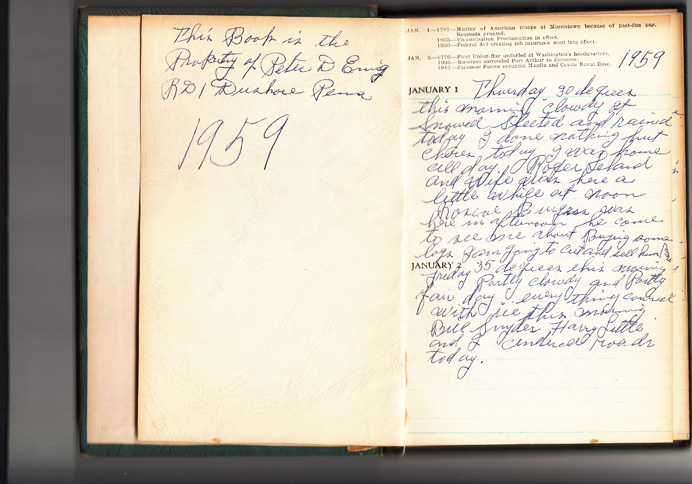 This Book is the
Property of Peter D Emig
RD1 Dushore Penna
1959
JAN. 1—1781—Mutiny of American troops at Morristown because of past-due pay.
Requests granted.
1863—Emancipation Proclamation in effect.
1936—Federal Act creating job insurance went into effect.
JAN. 2—1776—First Union flag unfurled at Washington's headquarters.
1905—Russians surrended Port Arthur to Japanese.
1942—Japanese Forces occupied Manila and Cavite Naval Base.
1959
JANUARY 1 Thursday 30 degrees
this morning cloudy it
snowed sleeted and rained
today I done nothing but
chores today I was home
all day Roger Leland
and wife was here a
little while at noon
Burgess was
here in afternoon he come
to see me about Buying some
logs I am going to cut and sell him
JANUARY 2
Friday 35 degrees this morning
Partly cloudy and Partly
fair day every thing covered
with ice this morning
Bill Snyder Harry Little
and I cindered roads
today.